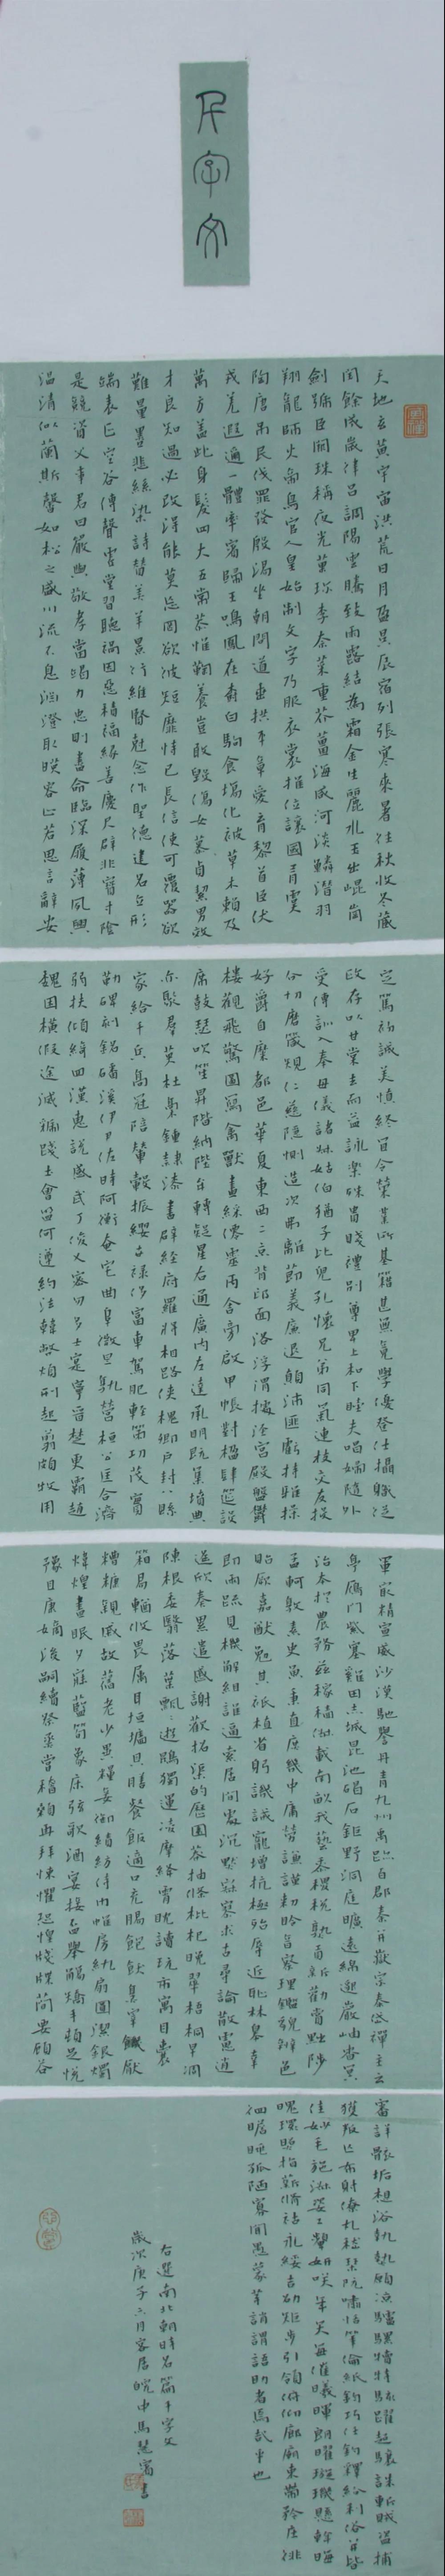 千字文
天地玄黃宇宙洪荒日月盈昃辰宿列張寒來暑往秋收冬藏
閏餘成歲律呂調陽雲騰致雨露結為霜金生麗水玉出崐崗
劍號巨闕珠稱夜光菓珍李柰菜重芥薑海咸河淡鱗潛羽
翔龍師火帝鳥官人皇始制文字乃服衣裳推位讓國有虞
陶唐吊民伐罪發殷湯坐朝問道垂拱平章愛育黎首臣伏
戎羌遐邇一體率賓歸王鳴鳳在樹白駒食場化被草木賴及
萬方蓋此身髮四大五常恭惟鞠養豈敢毀傷女慕貞絜男效
才良知過必改得能莫忘罔談彼短靡恃己長信使可覆器欲
難量墨悲絲染詩贊羔羊景行維賢克念作聖德建名立形
端表正空谷傳聲虛堂習聽禍因惡積福緣善慶尺璧非寶寸陰
是競資父事君曰嚴與敬孝當竭力忠則盡命臨深履薄夙興
溫清似蘭斯馨如松之盛川流不息淵澄取映容止若思言辭安
定篤初誠美慎終宜令榮業所基籍甚無竟學優登仕攝職從
政存以甘棠去而益詠樂殊貴賤禮別尊卑上和下睦夫唱婦隨外
受傅訓入奉母儀諸姑伯叔猶子比兒孔懷兄弟同氣連枝交友投
分切磨箴規仁慈隱惻造次弗離節義廉退顛沛匪虧持雅操
好爵自縻都邑華夏東西二京背邙面洛浮渭據涇宮殿盤鬱
樓觀飛驚圖寫禽獸畫綵仙靈丙舍傍啟甲帳對楹肆筵設
席鼓瑟吹笙昇階納陛弁轉疑星右通廣內左達承明既集墳典
亦聚群英杜稾鍾隸漆書壁經府羅將相路俠槐卿戶封八縣
家給千兵高冠陪輦轂振纓世祿侈富車駕肥輕策功茂實
勒碑刻銘磻溪伊尹佐時阿衡奄宅曲阜微旦孰營桓公匡合濟
弱扶傾綺回漢惠說感武丁俊乂密勿多士寔寧晉楚更霸趙
魏困橫假途滅虢踐土會盟何遵約法韓弊煩刑起翦頗牧用
軍最精宣威沙漠馳譽丹青九州禹跡百郡秦并嶽宗泰岱禪主云
亭雁門紫塞雞田赤城昆池碣石鉅野洞庭曠遠綿邈巖岫杳冥
治本於農務茲稼穡俶載南畝我藝黍稷稅熟貢新勸賞黜陟
孟軻敦素史魚秉直庶幾中庸勞謙謹敕聆音察理鑑貌辨色
貽厥嘉猷勉其祗植省躬譏誡寵增抗極殆辱近恥林皋幸
即兩疏見機解組誰逼索居閒處沉默寂寥求古尋論散慮逍
遙欣奏累遣慼謝歡招渠荷的歷園莽抽條枇杷晚翠梧桐早凋
陳根委翳落葉飄飄遊鵾獨運凌摩絳霄耽讀玩市寓目囊
箱易輶攸畏屬耳垣墻具膳餐飯適口充腸飽飫烹宰飢厭
糟糠親戚故舊老少異糧妾御績紡侍巾帷房紈扇圓潔銀燭
煒煌晝眠夕寐藍筍象床弦歌酒宴接杯舉觴矯手頓足悅
豫且康嫡後嗣續祭祀蒸嘗稽顙再拜悚懼恐惶牋牒簡要顧答
審詳骸垢想浴執熱願涼驢騾犢特駭躍超驤誅斬賊盜捕
獲叛亡布射僚丸嵇琴阮嘯恬筆倫紙鈞巧任釣釋紛利俗並皆
佳妙毛施淑姿工顰妍咲年矢每催曦暉朗曜璇璣懸斡晦
魄環照指薪修祜永綏吉劭矩步引領俯仰廊廟束帶矜莊徘
徊瞻眺孤陋寡聞愚蒙等誚謂語助者焉哉乎也
右選南北朝時名篇千字文
歲次庚子六月客居皖中馬慧書